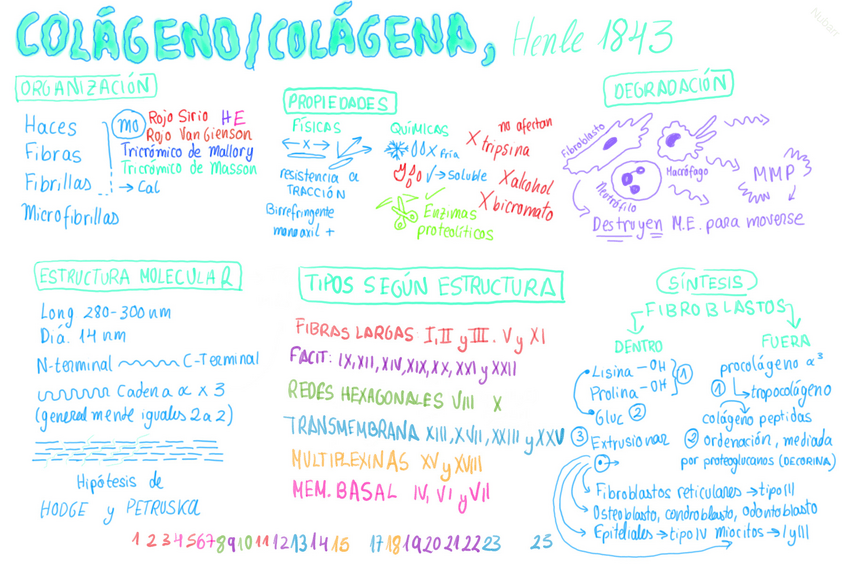 COLÁGENO/COLÁGENA, Henle 1843
Nubarr
ORGANIZACIÓN
Haces
Fibras
Fibrillas
Microfibrillas
MO
Rojo Sirio HE
Rojo Van Gienson
Tricrómico de Mallory
Tricrómico de Masson
→ Cal
PROPIEDADES
FÍSICAS
← x →
resistencia a
TRACCIÓN
Birrefringente
monoaxil +
QUÍMICAS
x fría
✓→soluble
✓
Enzimas
proteolíticos
no afectan
X tripsina
X alcohol
X bicromato
DEGRADACIÓN
Fibroblasto
Macrófago
Neutrófilo
MMP
Destruyen M.E. para moverse
ESTRUCTURA MOLECULAR
Long 280-300 nm
Diá. 14 nm
N-terminal C-Terminal
Cadena α x 3
(generalmente iguales 2a2)
Hipótesis de
HODGE y PETRUSKA
TIPOS SEGÚN ESTRUCTURA
FIBRAS LARGAS I, II y III. V y XI
FACIT: IX, XII, XIV, XIX, XX, XXI y XXII
REDES HEXAGONALES VIII X
TRANSMEMBRANA XIII, XVII, XXIII y XXV
MULTIPLEXINAS XV y XVIII
MEM. BASAL IV, VI y VII
1 2 3 4 5 6 7 8 9 10 11 12 13 14 15 17 18 19 20 21 22 23 25
SÍNTESIS
FIBROBLASTOS
DENTRO
Lisina -OH
Prolina -OH
①
Gluc ②
③ Extrusionar
FUERA
procolágeno α³
① tropocolágeno
colágeno peptidas
② ordenación, mediada
por proteoglucanos (DECORINA)
Fibroblastos reticulares → tipo III
Osteoblasto, condroblasto, odontoblasto
Epiteliales → tipo IV Miocitos → I y III